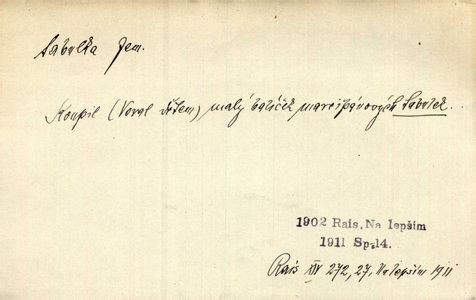 tabulka žem.
Koupil (Voral dětem) malý balíček marcipánových tabulek...
1902 Rais, Na lepším
1911 Sp.14.
Rais XIV 272, 27, Na lepším 1911